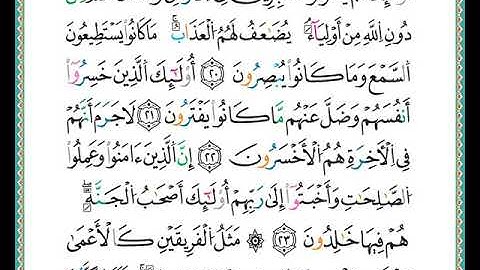 دُونِ ٱللَّهِ مِنْ أَوْلِيَآءَۘ يُضَٰعَفُ لَهُمُ ٱلْعَذَابُۚ مَا كَانُوا۟ يَسْتَطِيعُونَ
ٱلسَّمْعَ وَمَا كَانُوا۟ يُبْصِرُونَ ٢٠ أُو۟لَٰٓئِكَ ٱلَّذِينَ خَسِرُوٓا۟
أَنفُسَهُمْ وَضَلَّ عَنْهُم مَّا كَانُوا۟ يَفْتَرُونَ ٢١ لَا جَرَمَ أَنَّهُمْ
فِى ٱلْءَاخِرَةِ هُمُ ٱلْأَخْسَرُونَ ٢٢ إِنَّ ٱلَّذِينَ ءَامَنُوا۟ وَعَمِلُوا۟
ٱلصَّٰلِحَٰتِ وَأَخْبَتُوٓا۟ إِلَىٰ رَبِّهِمْ أُو۟لَٰٓئِكَ أَصْحَٰبُ ٱلْجَنَّةِۖ
هُمْ فِيهَا خَٰلِدُونَ ٢٣ ۞ مَثَلُ ٱلْفَرِيقَيْنِ كَٱلْأَعْمَىٰ